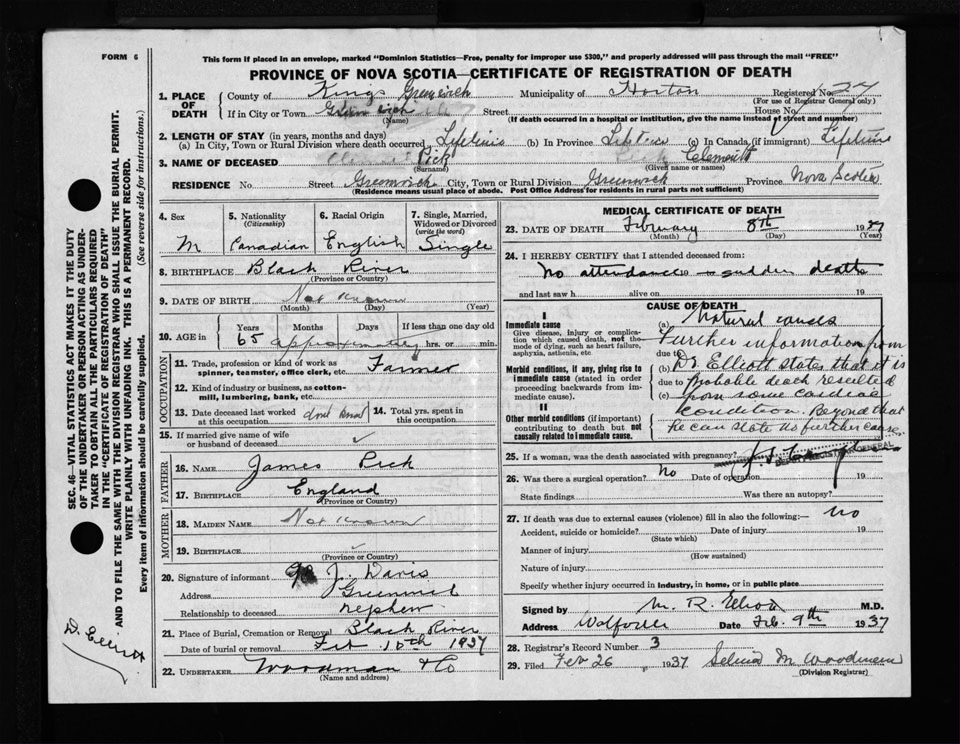 FORM 6
This form if placed in an envelope, marked "Dominion Statistics—Free, penalty for improper use $300," and properly addressed will pass through the mail "FREE"
PROVINCE OF NOVA SCOTIA—CERTIFICATE OF REGISTRATION OF DEATH
1. PLACE OF DEATH
County of Kings Greenwich Municipality of Horton Registered No. 24
(For use of Registrar General only)
If in City or Town Greenwich Street House No.
(Name) (If death occurred in a hospital or institution, give the name instead of street and number)
2. LENGTH OF STAY (in years, months and days)
(a) In City, Town or Rural Division where death occurred Lifetime (b) In Province Lifetime (c) In Canada (if immigrant) Lifetime
3. NAME OF DECEASED Pick Clement
(Surname) (Given name or names)
RESIDENCE No. Street Greenwich City, Town or Rural Division Greenwich Province Nova Scotia
(Residence means usual place of abode. Post Office Address for residents in rural parts not sufficient)
4. Sex
M
5. Nationality
(Citizenship)
Canadian
6. Racial Origin
English
7. Single, Married, Widowed or Divorced
(write the word)
Single
8. BIRTHPLACE Black River
(Province or Country)
9. DATE OF BIRTH Not Known
(Month) (Day) (Year)
10. AGE in
Years Months Days If less than one day old
65 approximately hrs. or min.
OCCUPATION
11. Trade, profession or kind of work as spinner, teamster, office clerk, etc. Farmer
12. Kind of industry or business, as cotton-mill, lumbering, bank, etc.
13. Date deceased last worked at this occupation dont know
14. Total yrs. spent in this occupation
15. If married give name of wife or husband of deceased ✓
FATHER
16. NAME James Pick
17. BIRTHPLACE England
(Province or Country)
MOTHER
18. MAIDEN NAME Not Known
19. BIRTHPLACE ✓
(Province or Country)
20. Signature of informant J. Davis
Address
Relationship to deceased nephew
21. Place of Burial, Cremation or Removal Black River
Date of burial or removal Feb 10th 1937
22. UNDERTAKER Woodman & Co
(Name and address)
MEDICAL CERTIFICATE OF DEATH
23. DATE OF DEATH February 8th 1937
(Month) (Day) (Year)
24. I HEREBY CERTIFY that I attended deceased from:
No attendance - sudden death
and last saw h alive on 19
CAUSE OF DEATH
I
Immediate cause
Give disease, injury or complication which caused death, not the mode of dying, such as heart failure, asphyxia, asthenia, etc
Morbid conditions, if any, giving rise to immediate cause (stated in order proceeding backwards from immediate cause).
II
Other morbid conditions (if important) contributing to death but not causally related to immediate cause.
(a) Natural causes
Further information from
due to
(b) Dr Elliott states that it is
due to probable death resulted
(c) from some cardiac
condition. Beyond that
he can state no further cause
25. If a woman, was the death associated with pregnancy?
DEPUTY REGISTRAR GENERAL
26. Was there a surgical operation? No Date of operation 19
State findings Was there an autopsy?
27. If death was due to external causes (violence) fill in also the following:— no
Accident, suicide or homicide? Date of injury 19
(State which)
Manner of injury
(How sustained)
Nature of injury
Specify whether injury occurred in industry, in home, or in public place
Signed by M. R. Elliott M.D.
Address Wolfville Date Feb. 9th 1937
28. Registrar's Record Number 3
29. Filed Feb 26, 1937 Selina M Woodman
(Division Registrar)
SEC. 46—VITAL STATISTICS ACT MAKES IT THE DUTY
OF THE UNDERTAKER OR PERSON ACTING AS UNDER-
TAKER TO OBTAIN ALL THE PARTICULARS REQUIRED
IN THE "CERTIFICATE OF REGISTRATION OF DEATH"
AND TO FILE THE SAME WITH THE DIVISION REGISTRAR WHO SHALL ISSUE THE BURIAL PERMIT.
WRITE PLAINLY WITH UNFADING INK. THIS IS A PERMANENT RECORD.
Every item of information should be carefully supplied. (See reverse side for instructions.)
D. Elliott